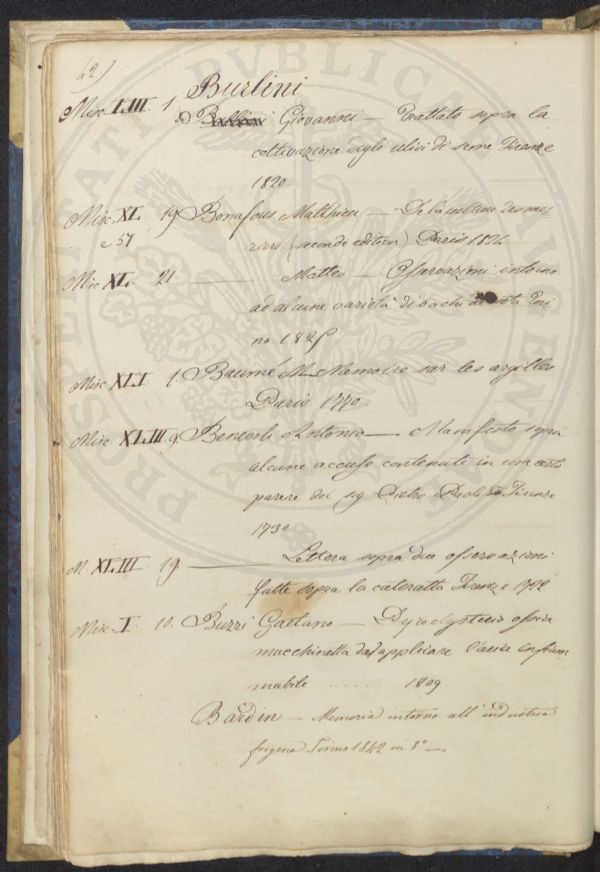 42)
Burlini
Misc. LIII. 1. Giovanni — Trattato sopra la
coltivazione degli ulivi di seme Firenze
1820
Misc. XL. 19 Bonafous Matthieu — De la culture des mu
e 57 riers (seconde edition) Paris 1824
Misc XL. 21 — Matteo — Osservazioni intorno
ad alcune varietà di bachi da seta Tori
no 1825
Misc XLI 1. Baumé M. Memoire sur les argilles
Paris 1770
Misc. XLIII. 9. Benevoli Antonio — Manifesto sopra
alcune accuse contenute in una certo
parere del sig. Pietro Paoli Firenze
1730
M. XLIII 19 — Lettera sopra due osservazioni
fatte sopra la cateratta Firenze 1722
Misc. I. 10. Buzzi Gaetano — ossia
macchinetta ad applicare l'aria infiam
mabile ........ 1809
Bardin — Memoria intorno all'industria
Torino 1842 in 8° —
PROSPERITATI PUBLICAE AUGENDAE